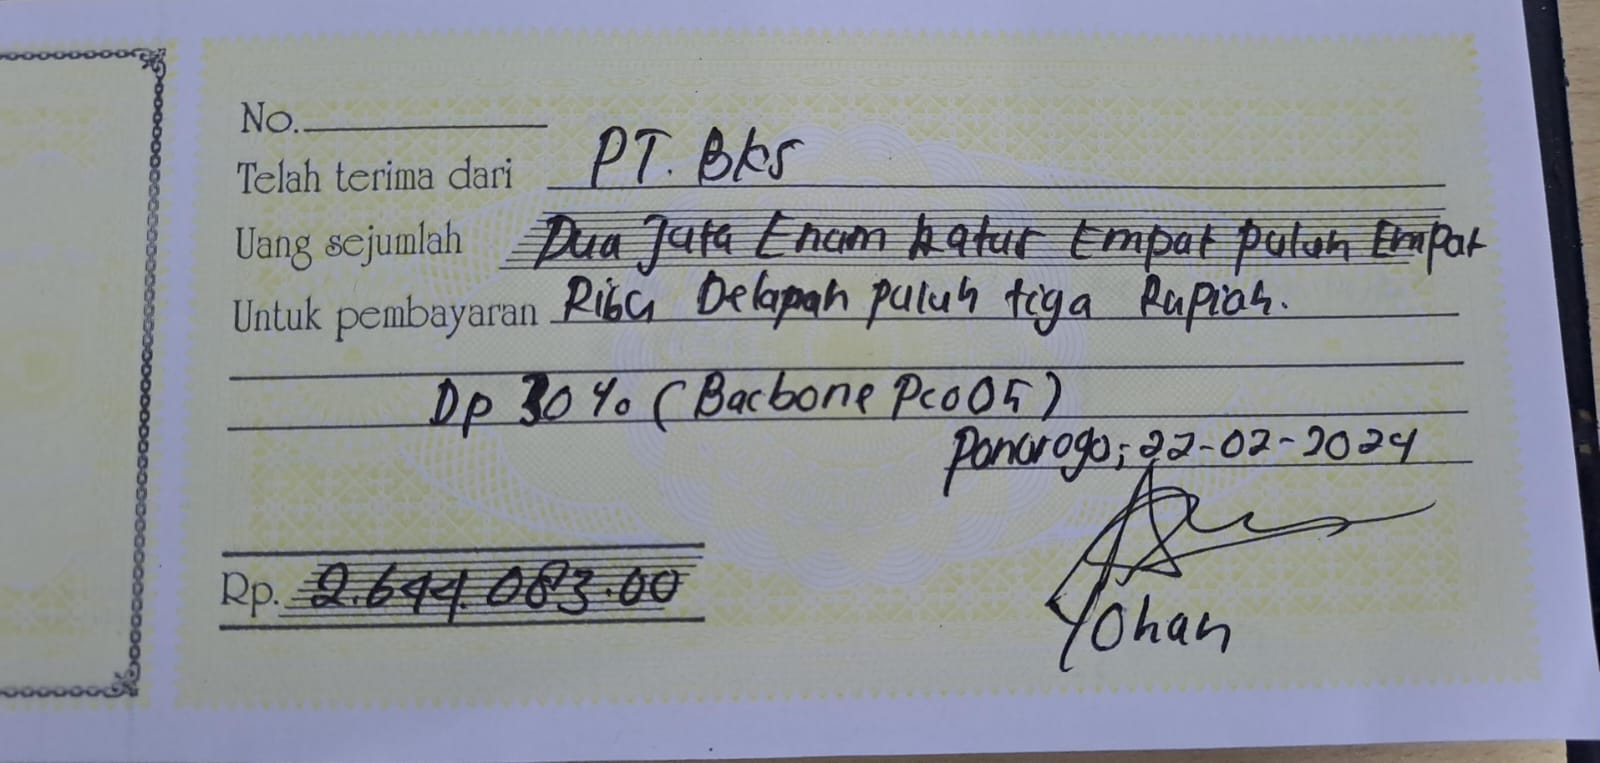 No.
Telah terima dari PT. Bks
Uang sejumlah Dua Juta Enam Ratus Empat puluh Empat
Untuk pembayaran Ribu Delapan puluh tiga Rupiah.
Dp 30% (Bacbone Pco05)
Ponorogo; 22-02-2024
Rp. 2.644.083.00
Yohan